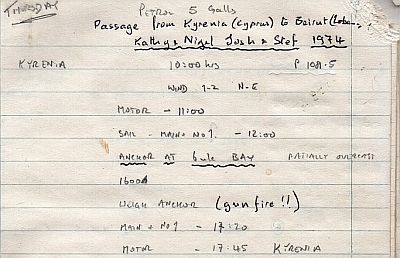 THURSDAY
PETROL 5 Galls
Passage from Kyrenia (Cyprus) to Beirut (Leba
Kathy & Nigel Josh & Stef 1974
KYRENIA 10:00 hrs P 1081.5
WIND 1-2 N-E
MOTOR - 11:00
SAIL - MAIN + No1. - 12:00
ANCHOR AT BAY PARTIALLY OVERCAST
1600
WEIGH ANCHOR (gunfire!!)
MAIN + No1 - 17:20
MOTOR - 17:45 KYRENIA